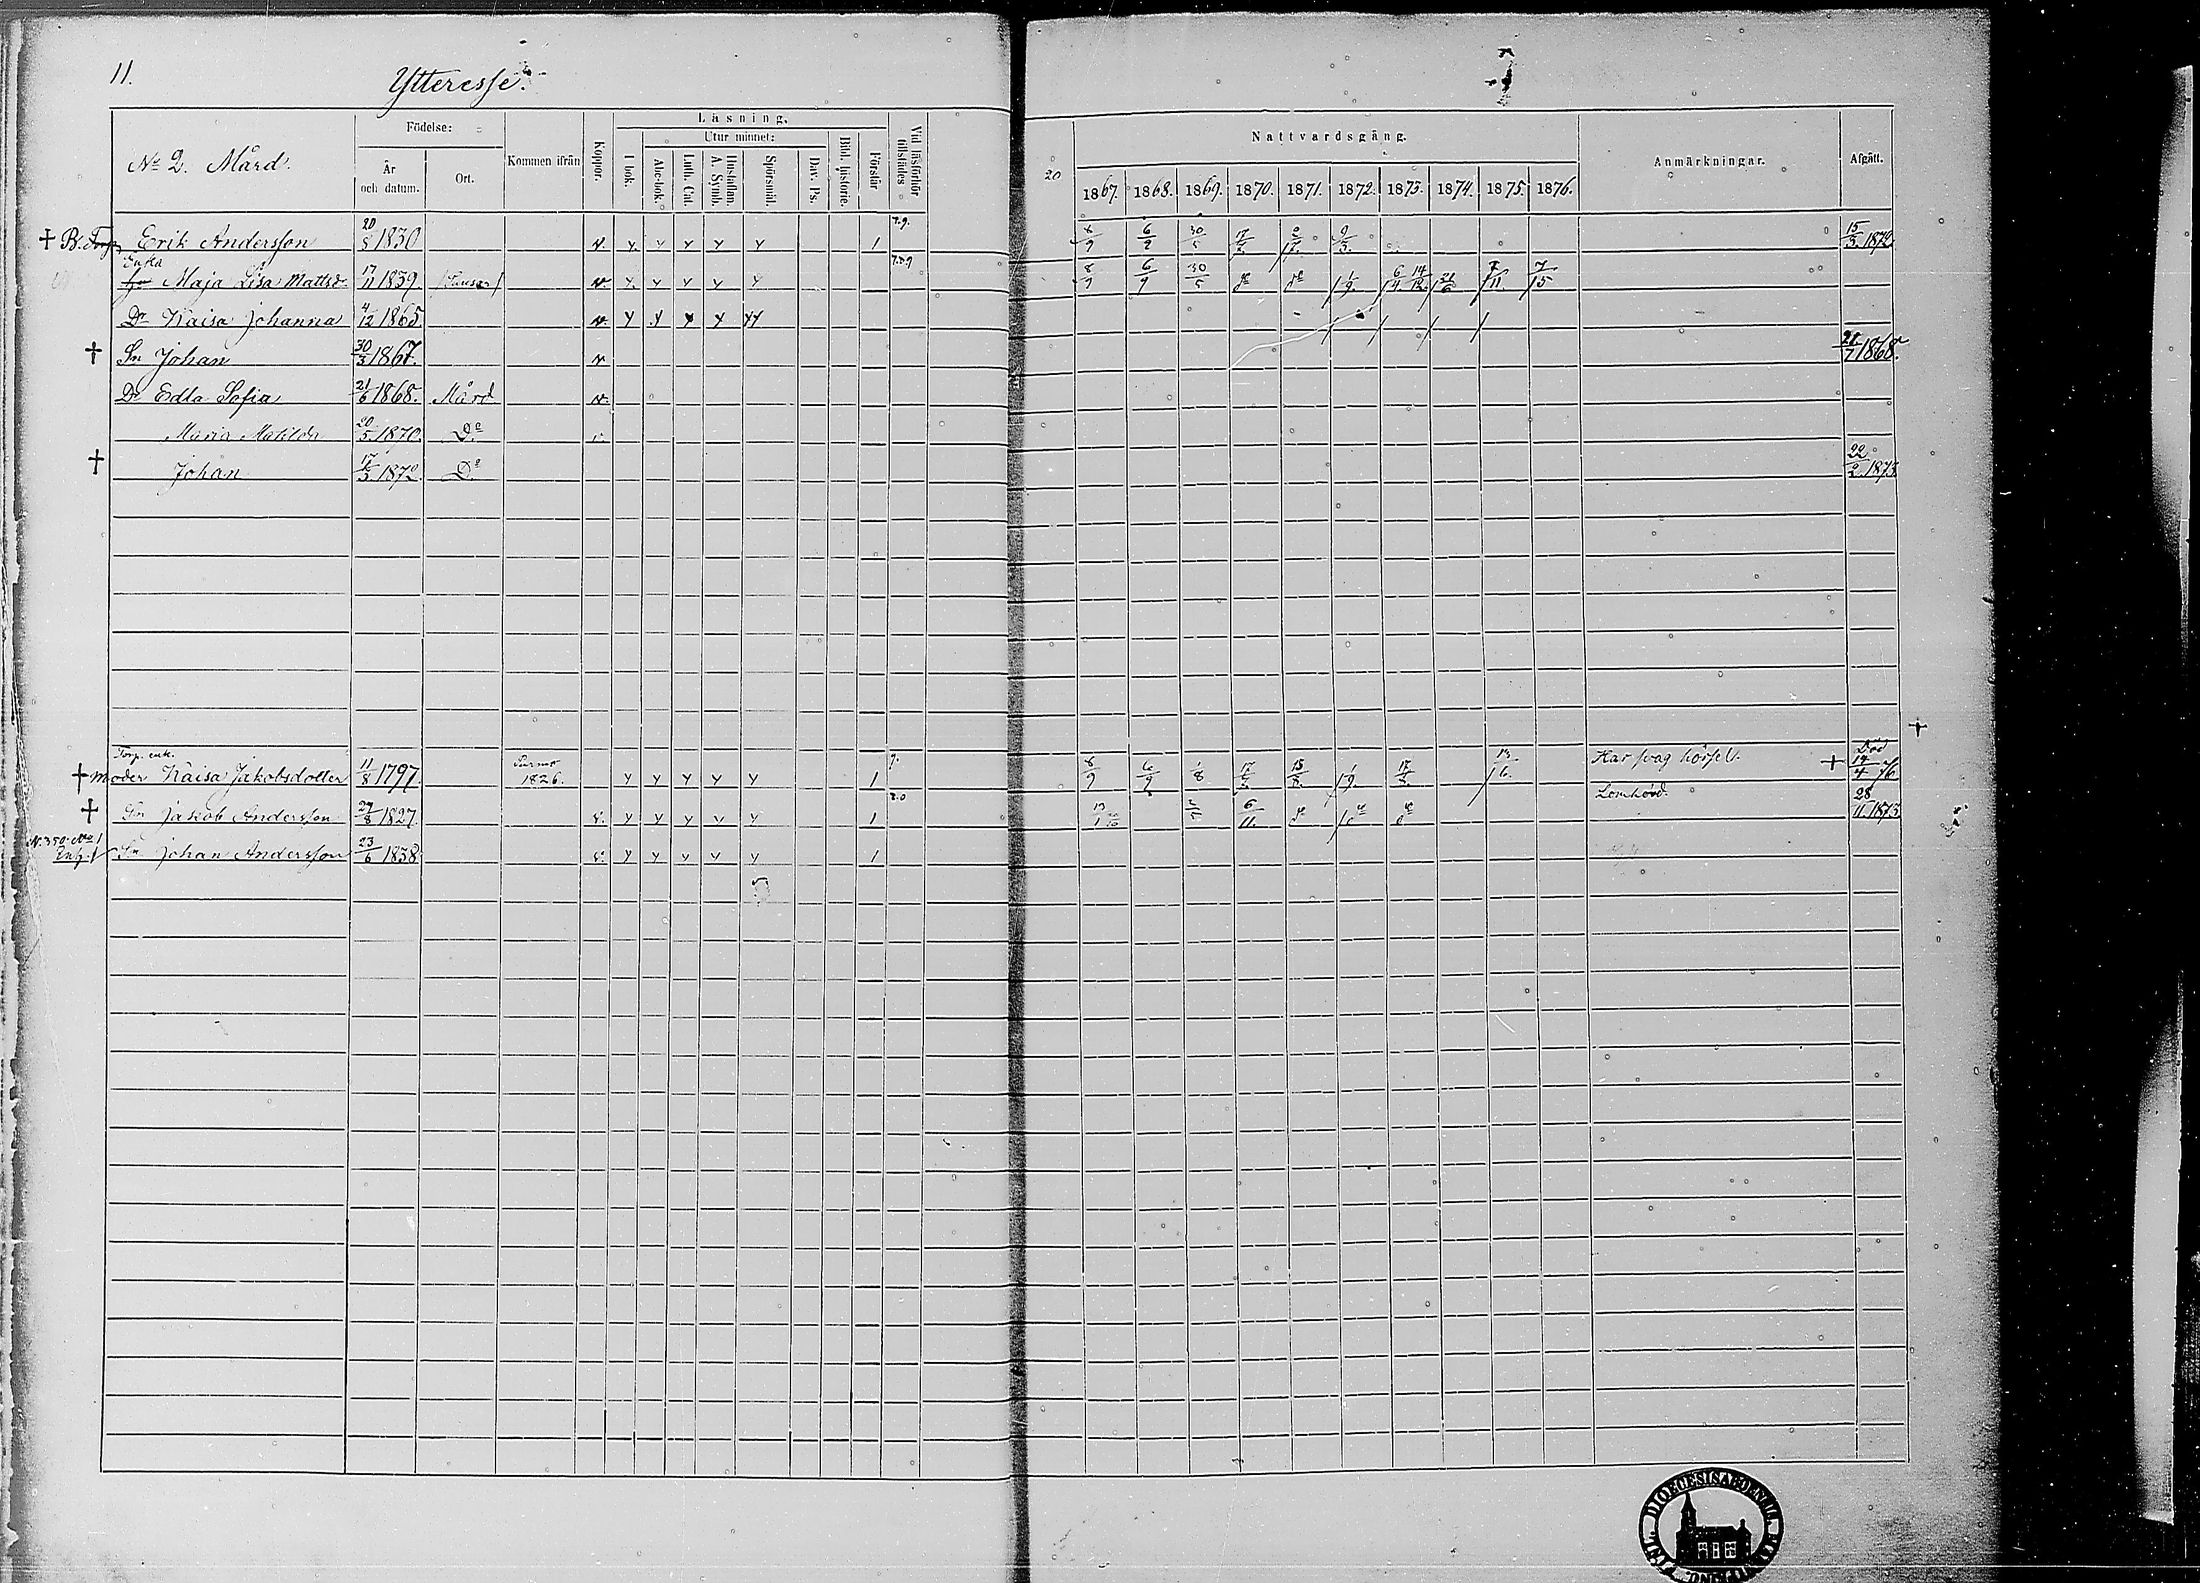 11.
Ytteresse.
No 2. Mård.
Födelse:
År och datum.
Ort.
Kommen ifrån
Koppor.
Läsning.
I bok.
Utur minnet:
Abc-bok.
Luth. Cat.
Hustaflan. A. Symb.
Spörsmål.
Dav. Ps.
Bibl. historie.
Förstår
Vid läsförhör tillstädes
20
Nattvardsgång.
1867. 1868. 1869. 1870. 1871. 1872. 1873. 1874. 1875. 1876.
Anmärkningar.
Afgått.
† B. Torp. Erik Andersson 20/8 1830 v. y y y y y 1 7.9. 8/9 6/9 30/5 17/7 9/3 15/3 1872
Enka
Maja Lisa Mattsd. 17/11 1839 v y y y y y 7.8.9 8/9 6/9 30/5 do do 1/9 6/4 14/12 21/6 7/11 7/5
Dr Kaisa Johanna 4/12 1865 v. y y y y yy
† Sn Johan 30/3 1867. v 21/7 1868.
Dr Edla Sofia 21/6 1868. Mård v.
Maria Matilda 20/5 1870. Do
† Johan 17/3 1872 Do 22/2 1873
Torp. enk.
† moder Kaisa Jakobsdotter 11/8 1797. Purmo 1826. y y y y y 1 9. 8/9 6/9 1/8 17/7 13/8 1/9 17/8 13/6 Har svag hörsel. † Död 14/4 76
† Sn Jakob Andersson 24/8 1827 v. y y y y y 1 6/11. Lomhörd. 28/11 1873
N. 350.
Sn Johan Andersson 23/6 1838 v. y y y y y 1